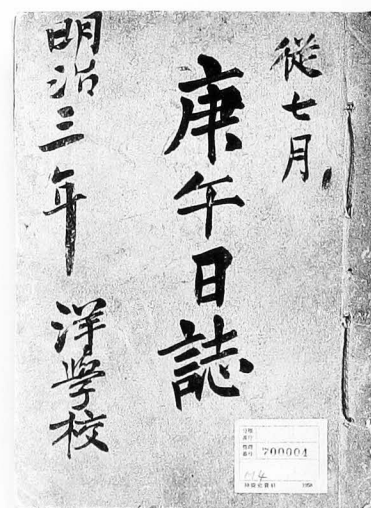 従七月
庚午日誌
明治三年 洋學校
700004
M4